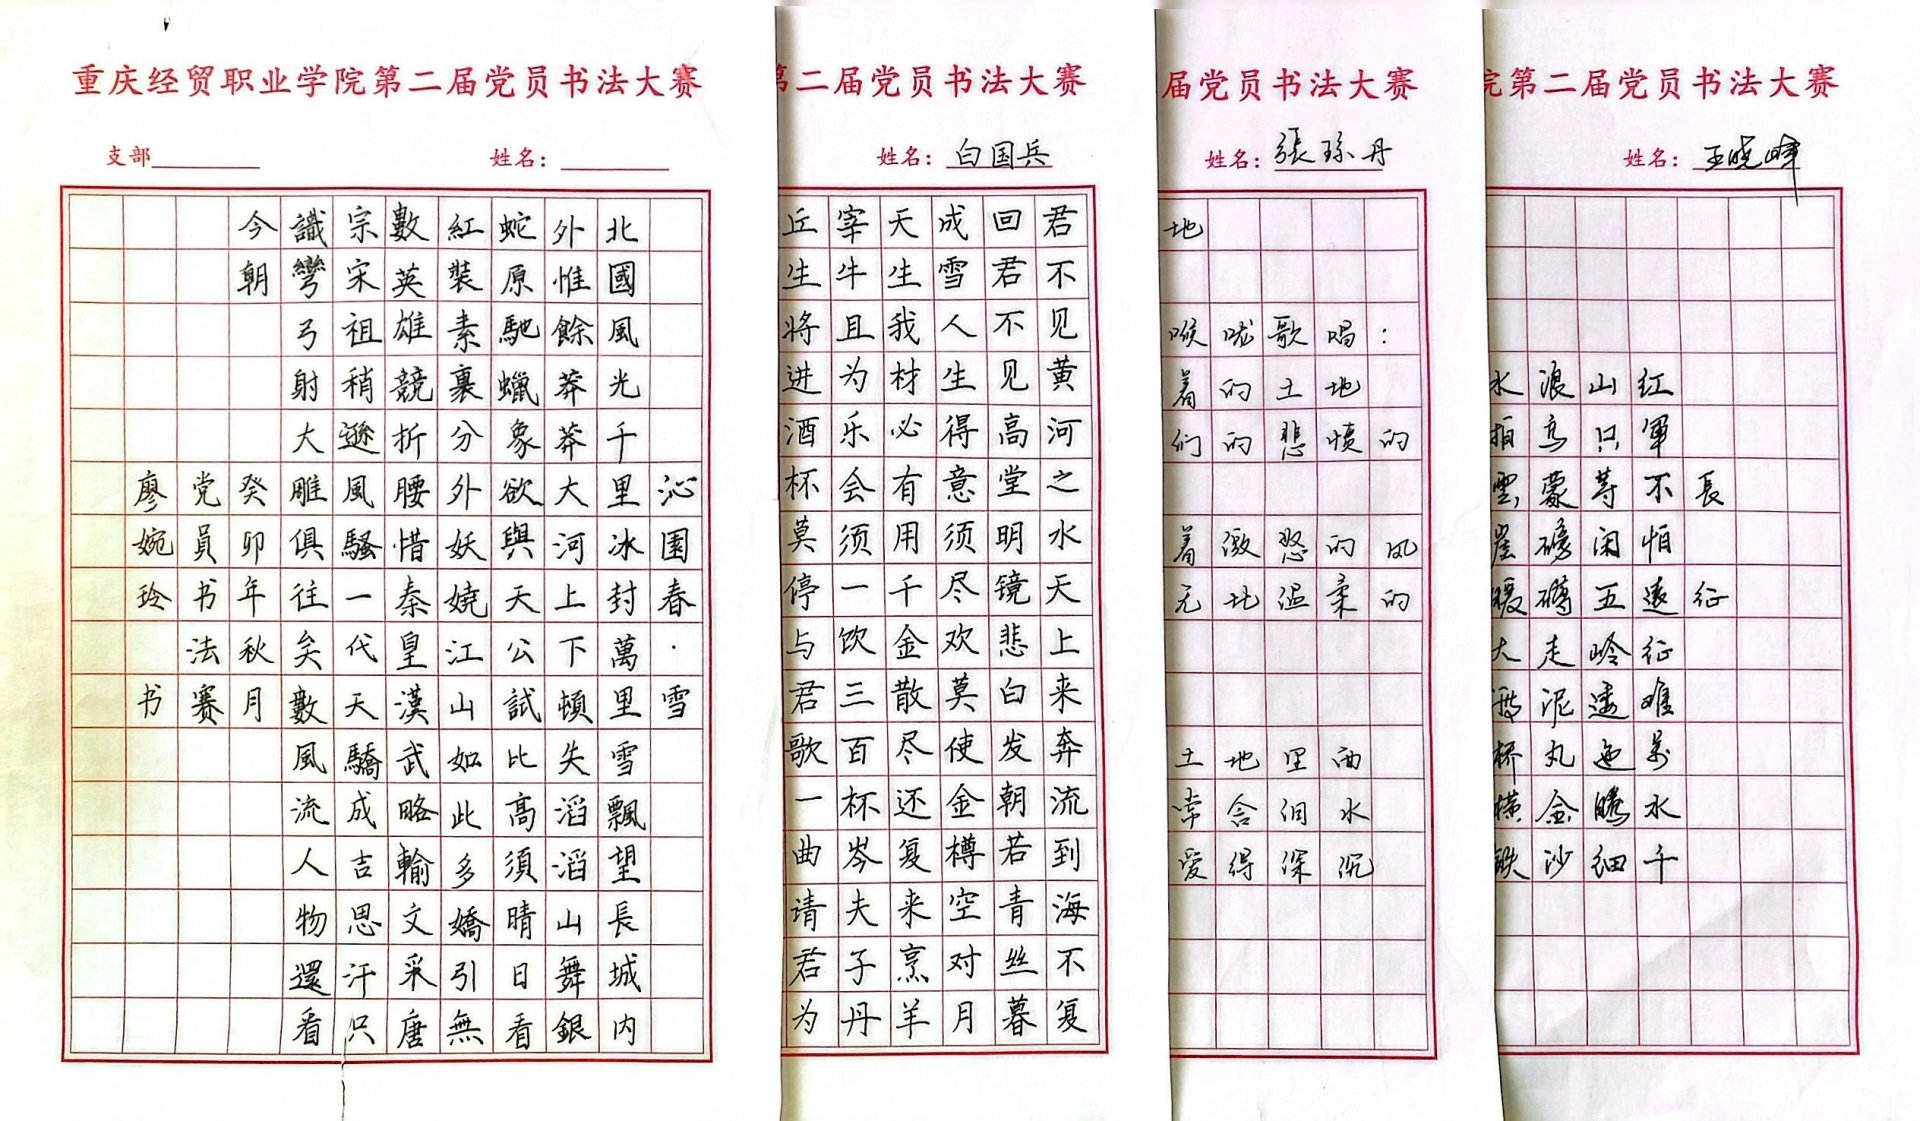 重庆经贸职业学院第二届党员书法大赛
支部 姓名：
沁園春·雪
北國風光千里冰封萬里雪飄望長城内
外惟餘莽莽大河上下頓失滔滔山舞銀
蛇原馳蠟象欲與天公試比高須晴日看
紅裝素裹分外妖嬈江山如此多嬌引無
數英雄競折腰惜秦皇漢武略輸文采唐
宗宋祖稍遜風騷一代天驕成吉思汗只
識彎弓射大雕俱往矣數風流人物還看
今朝 癸卯年秋月
党員书法賽
廖婉玲书
第二届党员书法大赛
姓名：白国兵
君不见黄河之水天上来奔流到海不复
回君不见高堂明镜悲白发朝若青丝暮
成雪人生得意须尽欢莫使金樽空对月
天生我材必有用千金散尽还复来烹羊
宰牛且为乐会须一饮三百杯岑夫子丹
丘生将进酒杯莫停与君歌一曲请君为
届党员书法大赛
姓名：張珎丹
地
喉咙歌唱：
着的土地
们的悲愤的
着激怒的风
无比温柔的
土地里面
常含泪水
爱得深沉
院第二届党员书法大赛
姓名：王晓峰
長征
红軍不怕遠征难萬水千
山只等闲五岭逶迤腾细
浪烏蒙磅礴走泥丸金沙
水拍雲崖暖大渡桥横铁